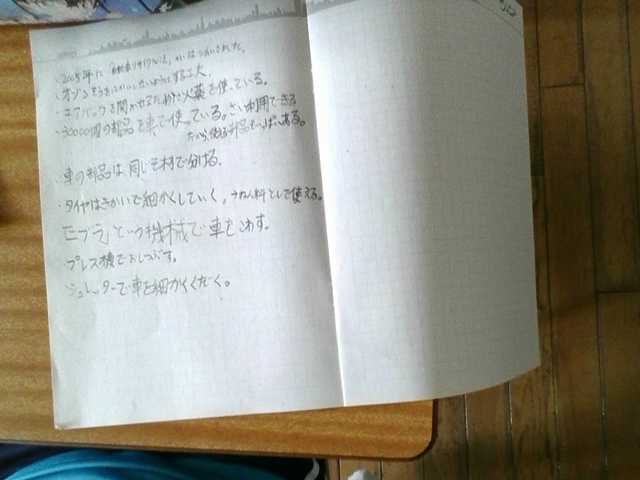 ・2005年に「自動車リサイクル法」がはつれいされた。
・オゾンそうをはかいしないようにする工夫。
・エアバックを開かせるために火薬を使っている。
・30000個の部品を車で使っている。さい利用できる
だから使える部品でいっぱいある。
・車の部品は、同じそ材で分ける。
・タイヤはきかいで細かくしていく、うねん料として使える。
「ニブラ」という機械で車をこわす。
プレス機でおしつぶす。
シュレッターで車を細かくくだく。